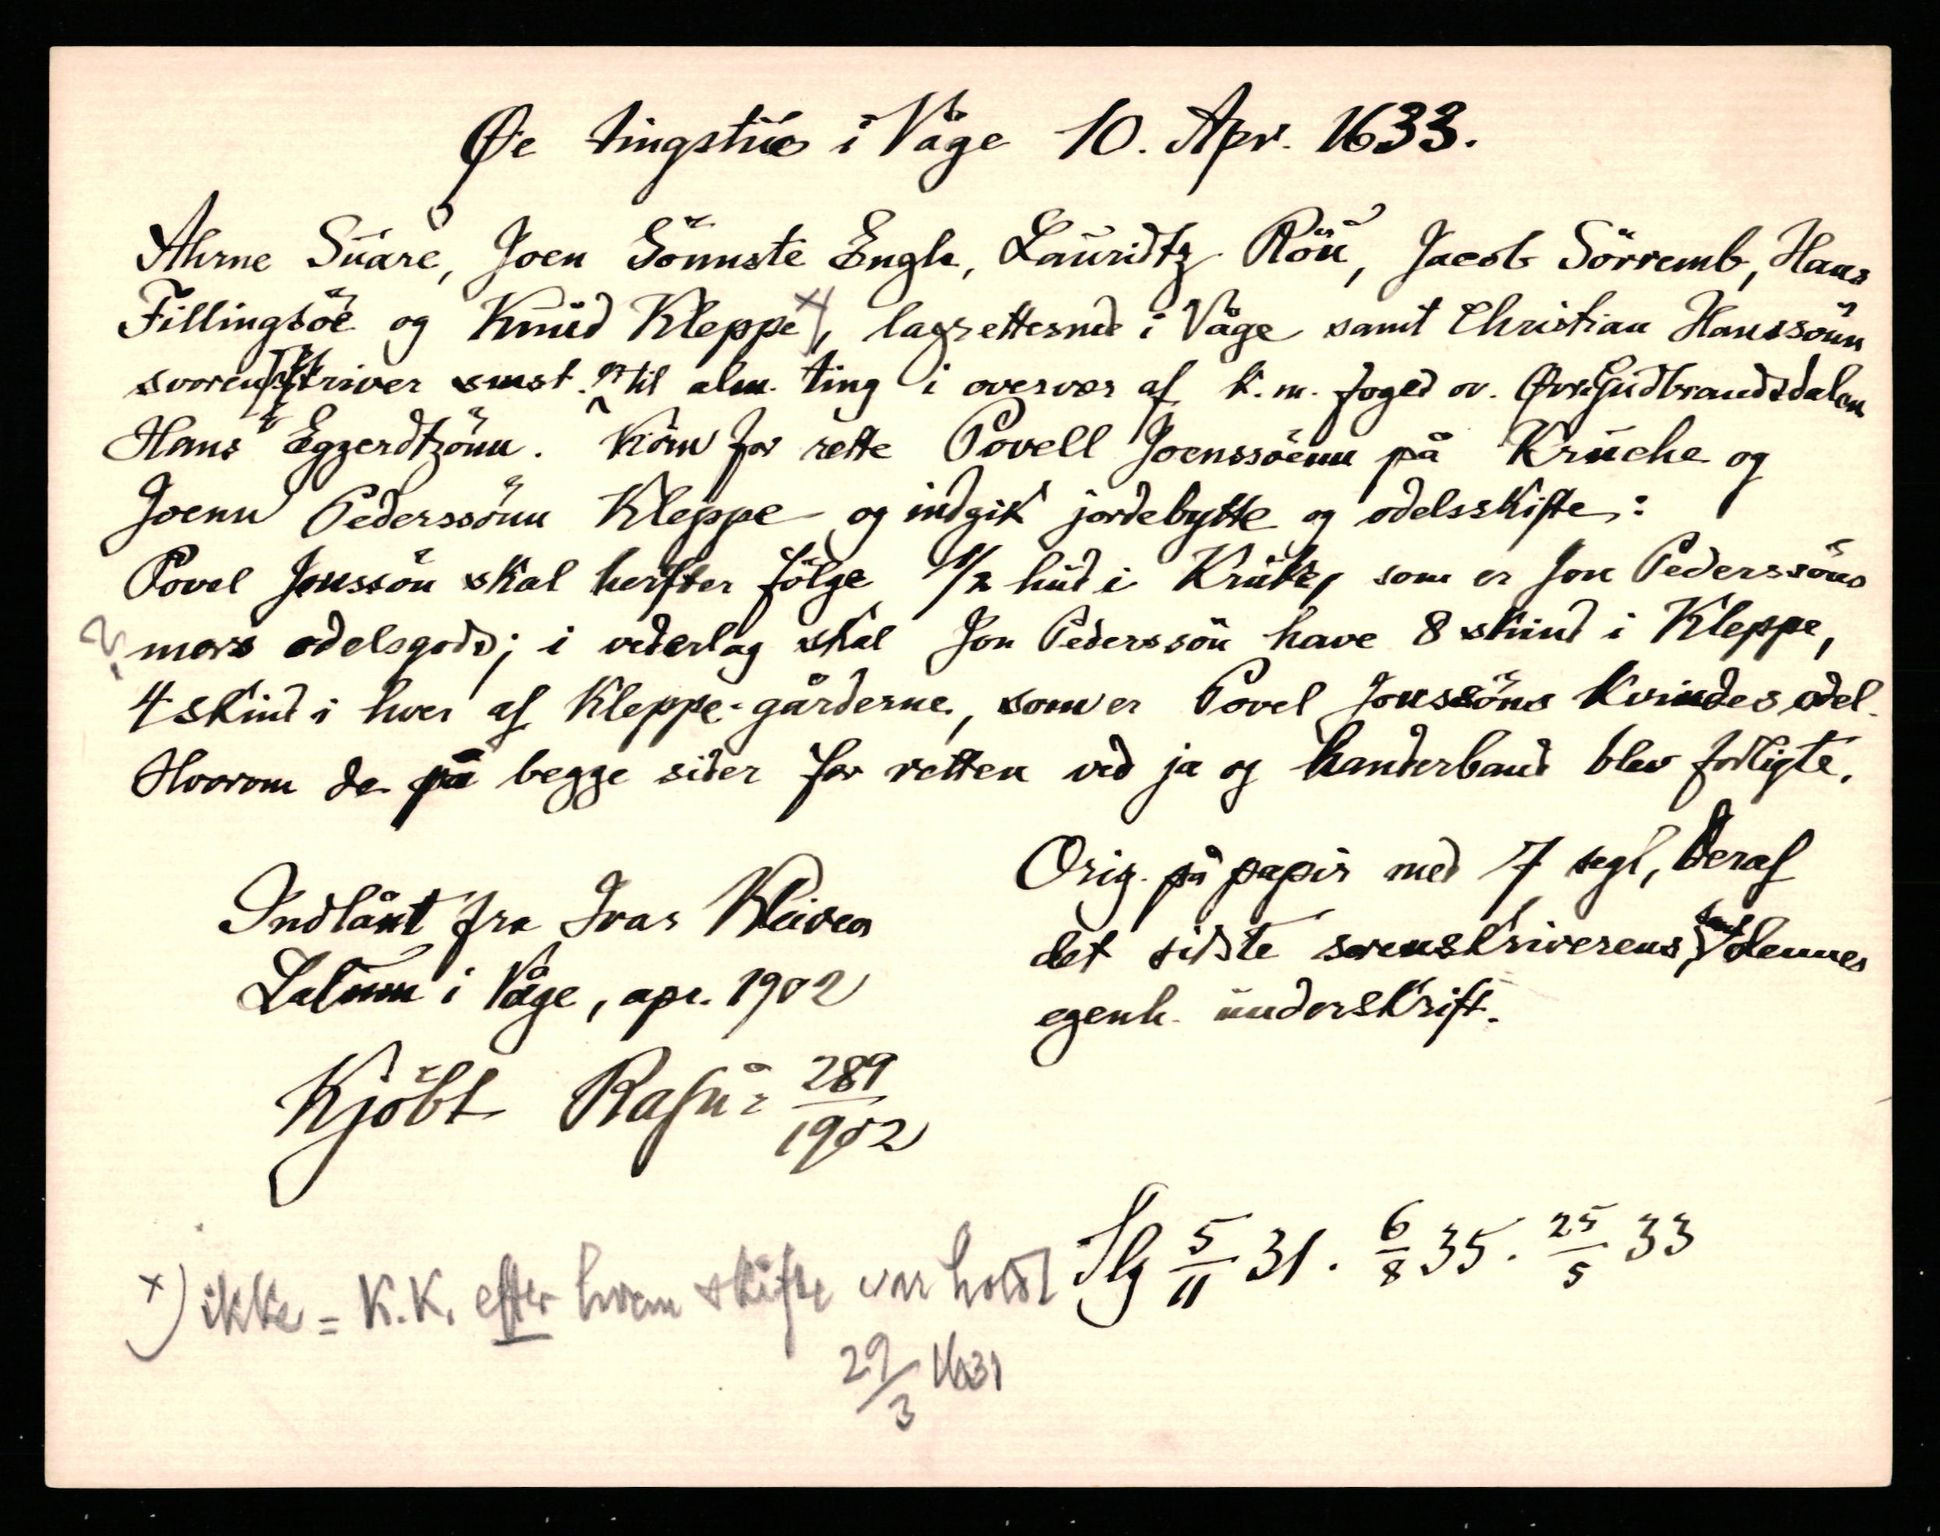 Øe tingstue i Våge 10. Apr. 1633.
Ahrne Suare, Joen Sönnste Engh, Lauridtz Röü, Jacob Sörremb, Hans
Fillingsöe og Knud Kleppe x), lagrettesmd i Våge samt Christian Hanssönn
svorenskriver smst. p til alm. ting i overvær af k. m. foged ov. Øvre Gudbrandsdalen
Hans Eggerdtzönn. Köm for rette Povell Joenssöenn på Kruche og
Joenn Pederssönn Kleppe og indgik jordebytte og odelsskifte:
Povel Jonssön skal herefter fölge 1/2 hud i Kruke, som er Jon Pederssöns
? mors odelsgods; i vederlag skal Jon Pederssön have 8 skind i Kleppe,
4 skind i hver af Kleppe-gårderne, som er Povel Jonssöns kvindes odel.
Hvorom de på begge sider for retten ved ja og handerband blev forligte.
Orig. på papir med 7 segl, deraf
det sidste sorenskriverens samt dennes
egenh. underskrift.
Indlånt fra Ivar Kleiven
Lalum i Våge, apr. 1902
Kjöbt 289/1902
Slg 5/11 31. 6/8 35. 25/5 33
x) ikke = K.K. efter hvem skifte var holdt
29/3 1631